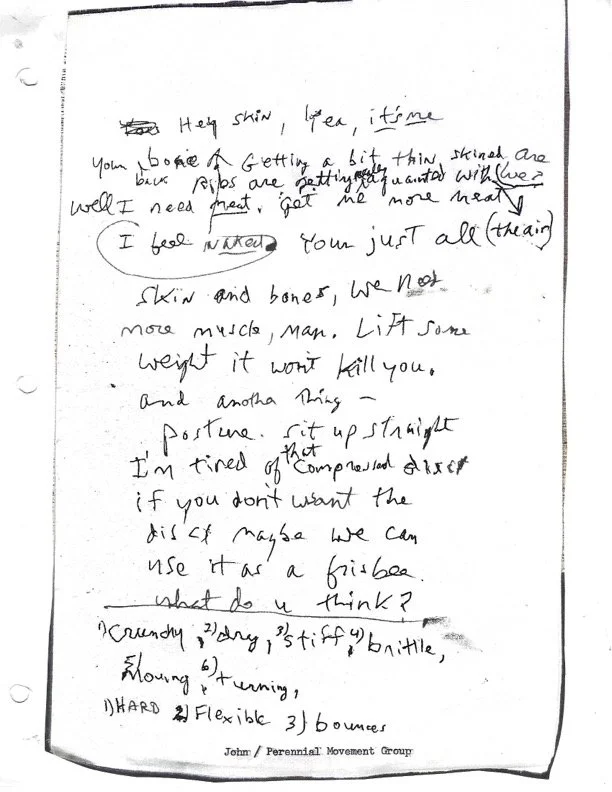 Hey skin, Yea, it's me
Your bone Getting a bit thin skined, are
back Ribs are getting aquanted with (we?
well I need meat. Get me more meat
I feel NAKED Your just all (the air)
skin and bones, we need
more muscle, man. Lift some
weight it won't kill you.
and another thing —
posture. sit up straight
I'm tired of that compressed disct
if you don't want the
disct maybe we can
use it as a frisbee.
what do u think?
1) Crunchy, 2) dry, 3) stiff, 4) brittle,
5) Moving, 6) turning,
1) HARD 2) Flexible 3) bounces
John / Perennial Movement Group